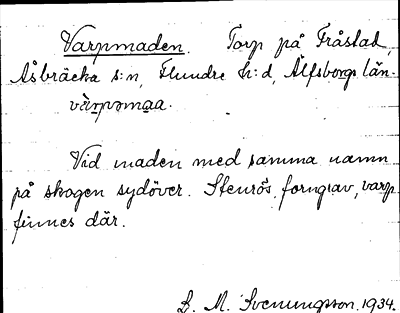 Varpmaden. Torp på Fråstad,
Åsbräcka s:n, Flundre h:d, Älfsborgs län.
vàrpəmaa.
Vid maden med samma namn
på skogen sydöver. Stenrös, forngrav, varp
finnes där.
D. M. Svenungsson. 1934.